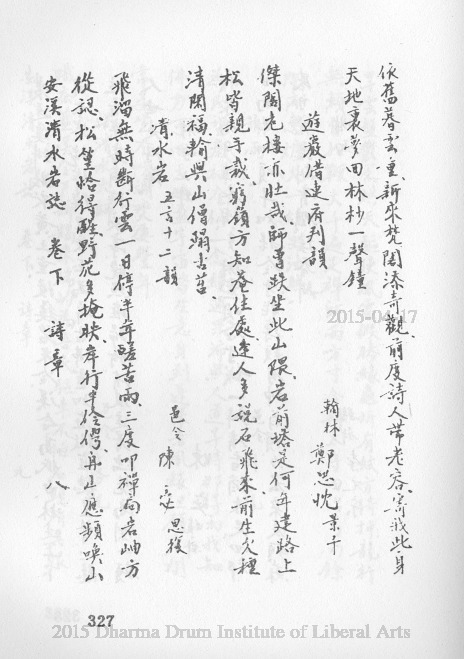 依舊暮雲重、新來梵閣添奇觀、前度詩人帶老容、寄我此身
天地裏夢回林杪一聲鐘
遊巖借建府判韻
翰林 鄭思忱 景千
傑閣老樓亦壯哉、師曾趺坐此山隈、岩前塔是何年建路上
松皆親手栽、窮領方知菴住處、逢人多說石飛來、前生欠種
清閒福、輸與山僧蹋古苔、
清水岩 五言十二韻
邑令 陳宓 思復
飛溜無時斷行雲一日停半年嗟苦雨、三度叩禪扃岩岫方
從認、松篁恰得醒、野花多掩映、岸行半伶俜、舟山應頻喚山
安溪清水岩誌 卷下 詩章 八
327
2015-04-17
2015 Dharma Drum Institute of Liberal Arts